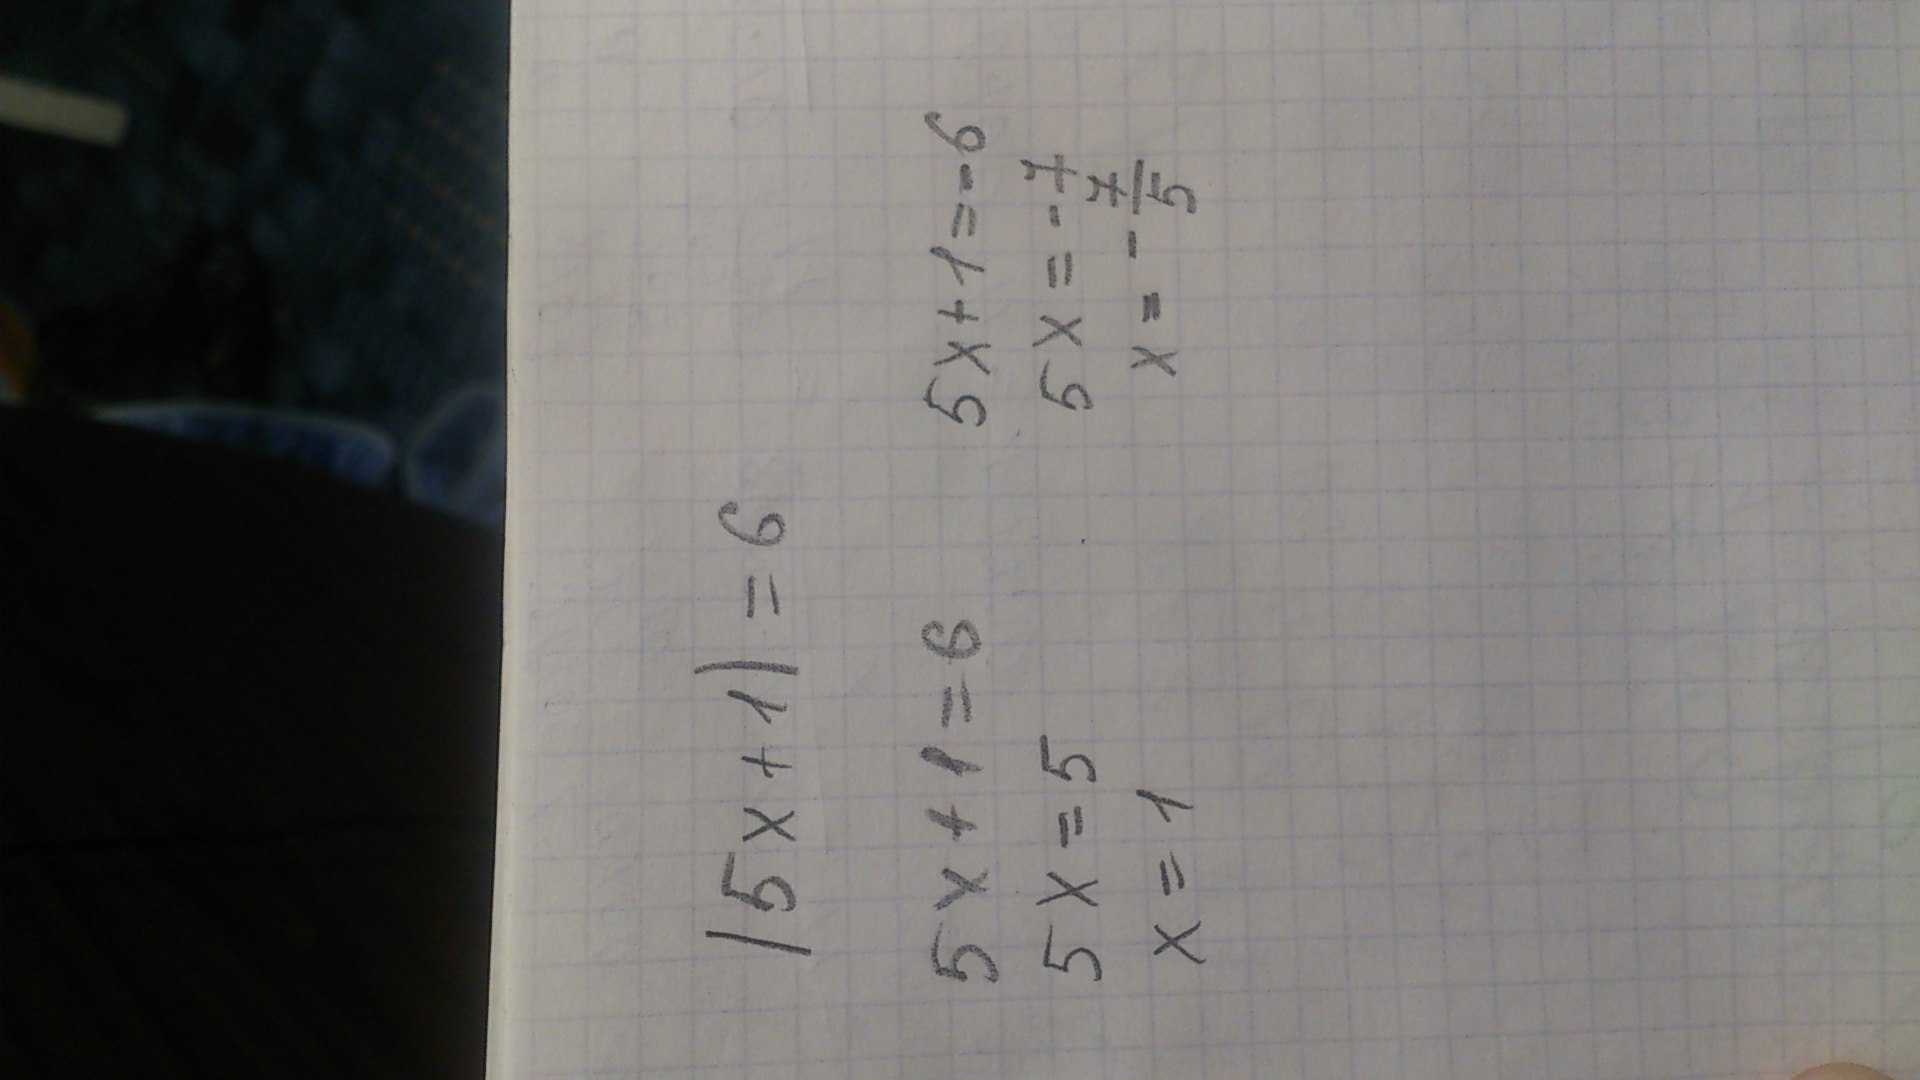 |5x+1|=6
5x+1=6 5x+1=-6
5x=5 5x=-7
x=1 x=-7/5